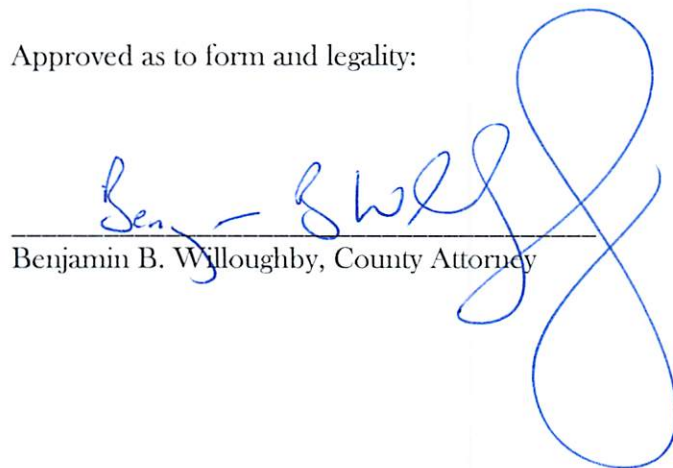 Approved as to form and legality:
Benjamin B. Willoughby, County Attorney